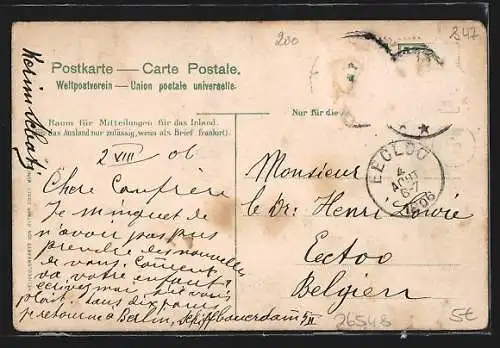 200
247
Postkarte — Carte Postale.
Weltpostverein — Union postale universelle.
Raum für Mitteilungen für das Inland.
(das Ausland nur zulässig, wenn als Brief frankiert).
Nur für die
2 VIII 06
EECLOO
4
AOUT
6-7
1906
Chère Confrère
Je m'inquiet de
n'avoir pas pus
des nouvelles
de vous. Comment
va votre enfant
écrivez moi
plait, dans dix jours
je retourne à Berlin, Schiffbauerdamm 5 II
Monsieur
le Dr: Henri
Eecloo
Belgien
26548
5€